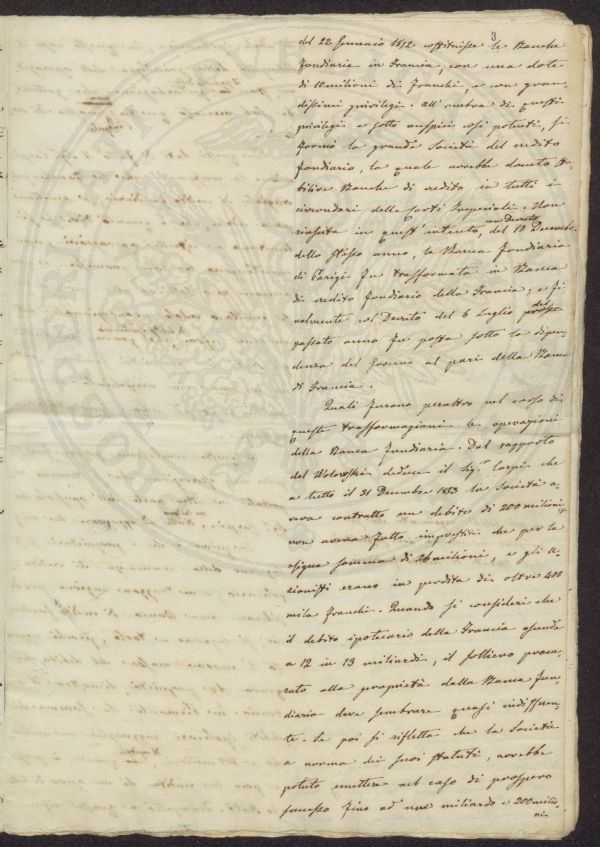 3
del 22 Gennaio 1852 costituisse le Banche
fondiarie in Francia, con una dote
di 10 milioni di franchi, e con gran-
dissimi privilegi. All'ombra di questi
privilegi e sotto auspici così potenti, si
formò la grande Società del credito
fondiario, la quale avrebbe dovuto sta-
bilire Banche di credito in tutti i
circondari delle Corti Imperiali. Non
riuscita in quest'intento, con Decreto del 10 Decembre
dello stesso anno, la Banca fondiaria
di Parigi fu trasformata in Banca
di credito fondiario della Francia; e fi-
nalmente col Decreto del 6 Luglio del pross.
passato anno fu posta sotto la dipen-
denza del Governo al pari della Banca
di Francia.
Quali furono peraltro nel corso di
queste trasformazioni le operazioni
della Banca fondiaria. Dal rapporto
del Wolowski deduce il Sig.r Carpi che
a tutto il 31 Decembre 1853 la Società a-
veva contratto un debito di 200 milioni,
non aveva fatto imprestiti che per la
esigua somma di 26 milioni, e gli a-
zionisti erano in perdita di oltre 400
mila franchi. Quando si consideri che
il debito ipotecario della Francia ascende
a 12 in 13 miliardi, il sollievo procu-
rato alla proprietà dalla Banca fon-
diaria deve sembrare quasi indifferen-
te. Se poi si rifletta che la Società
a norma dei suoi statuti, avrebbe
potuto emettere nel caso di prospero
successo fino ad un miliardo e 200 milio
ni